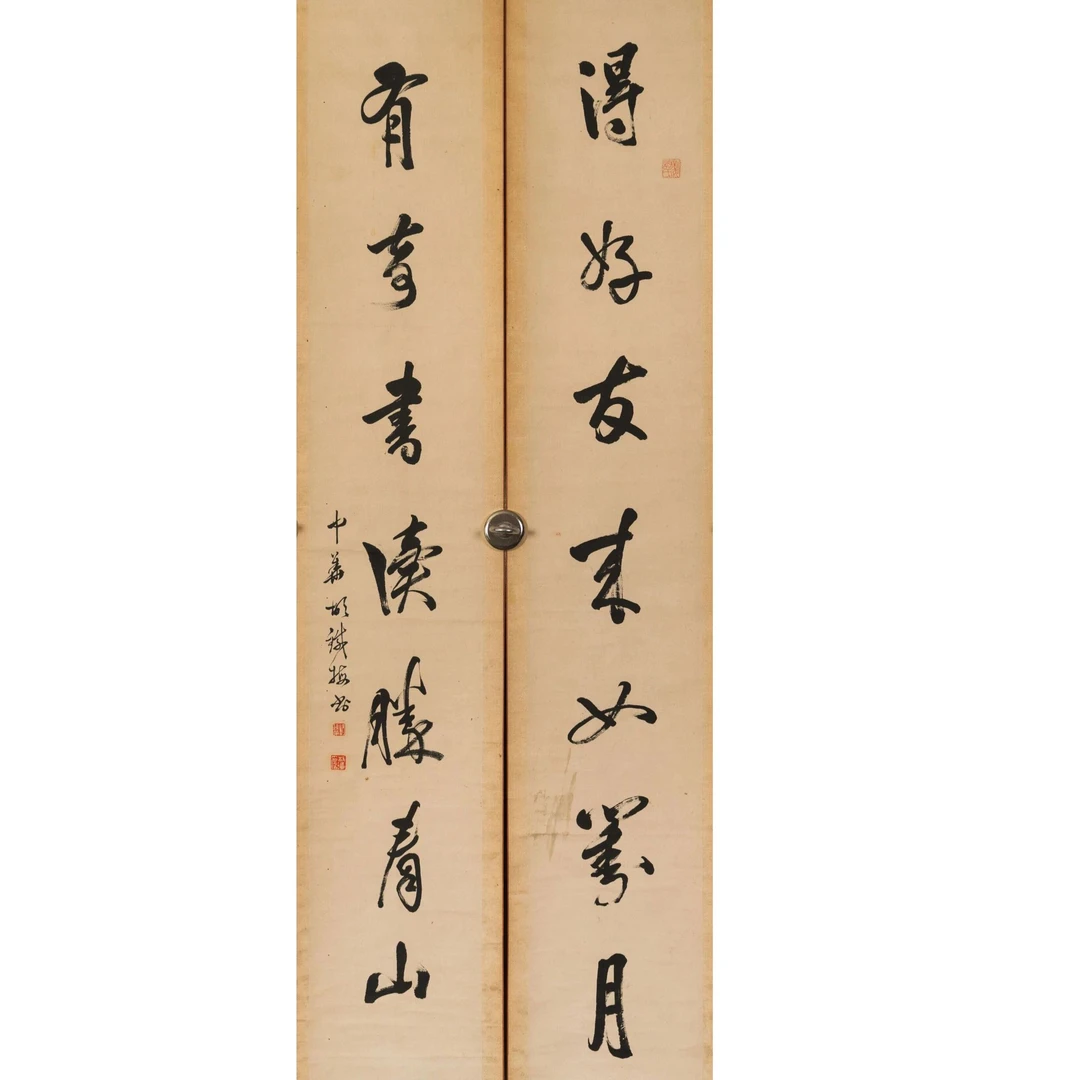 得好友來如對月
有奇書讀勝看山
中華胡鐵梅書